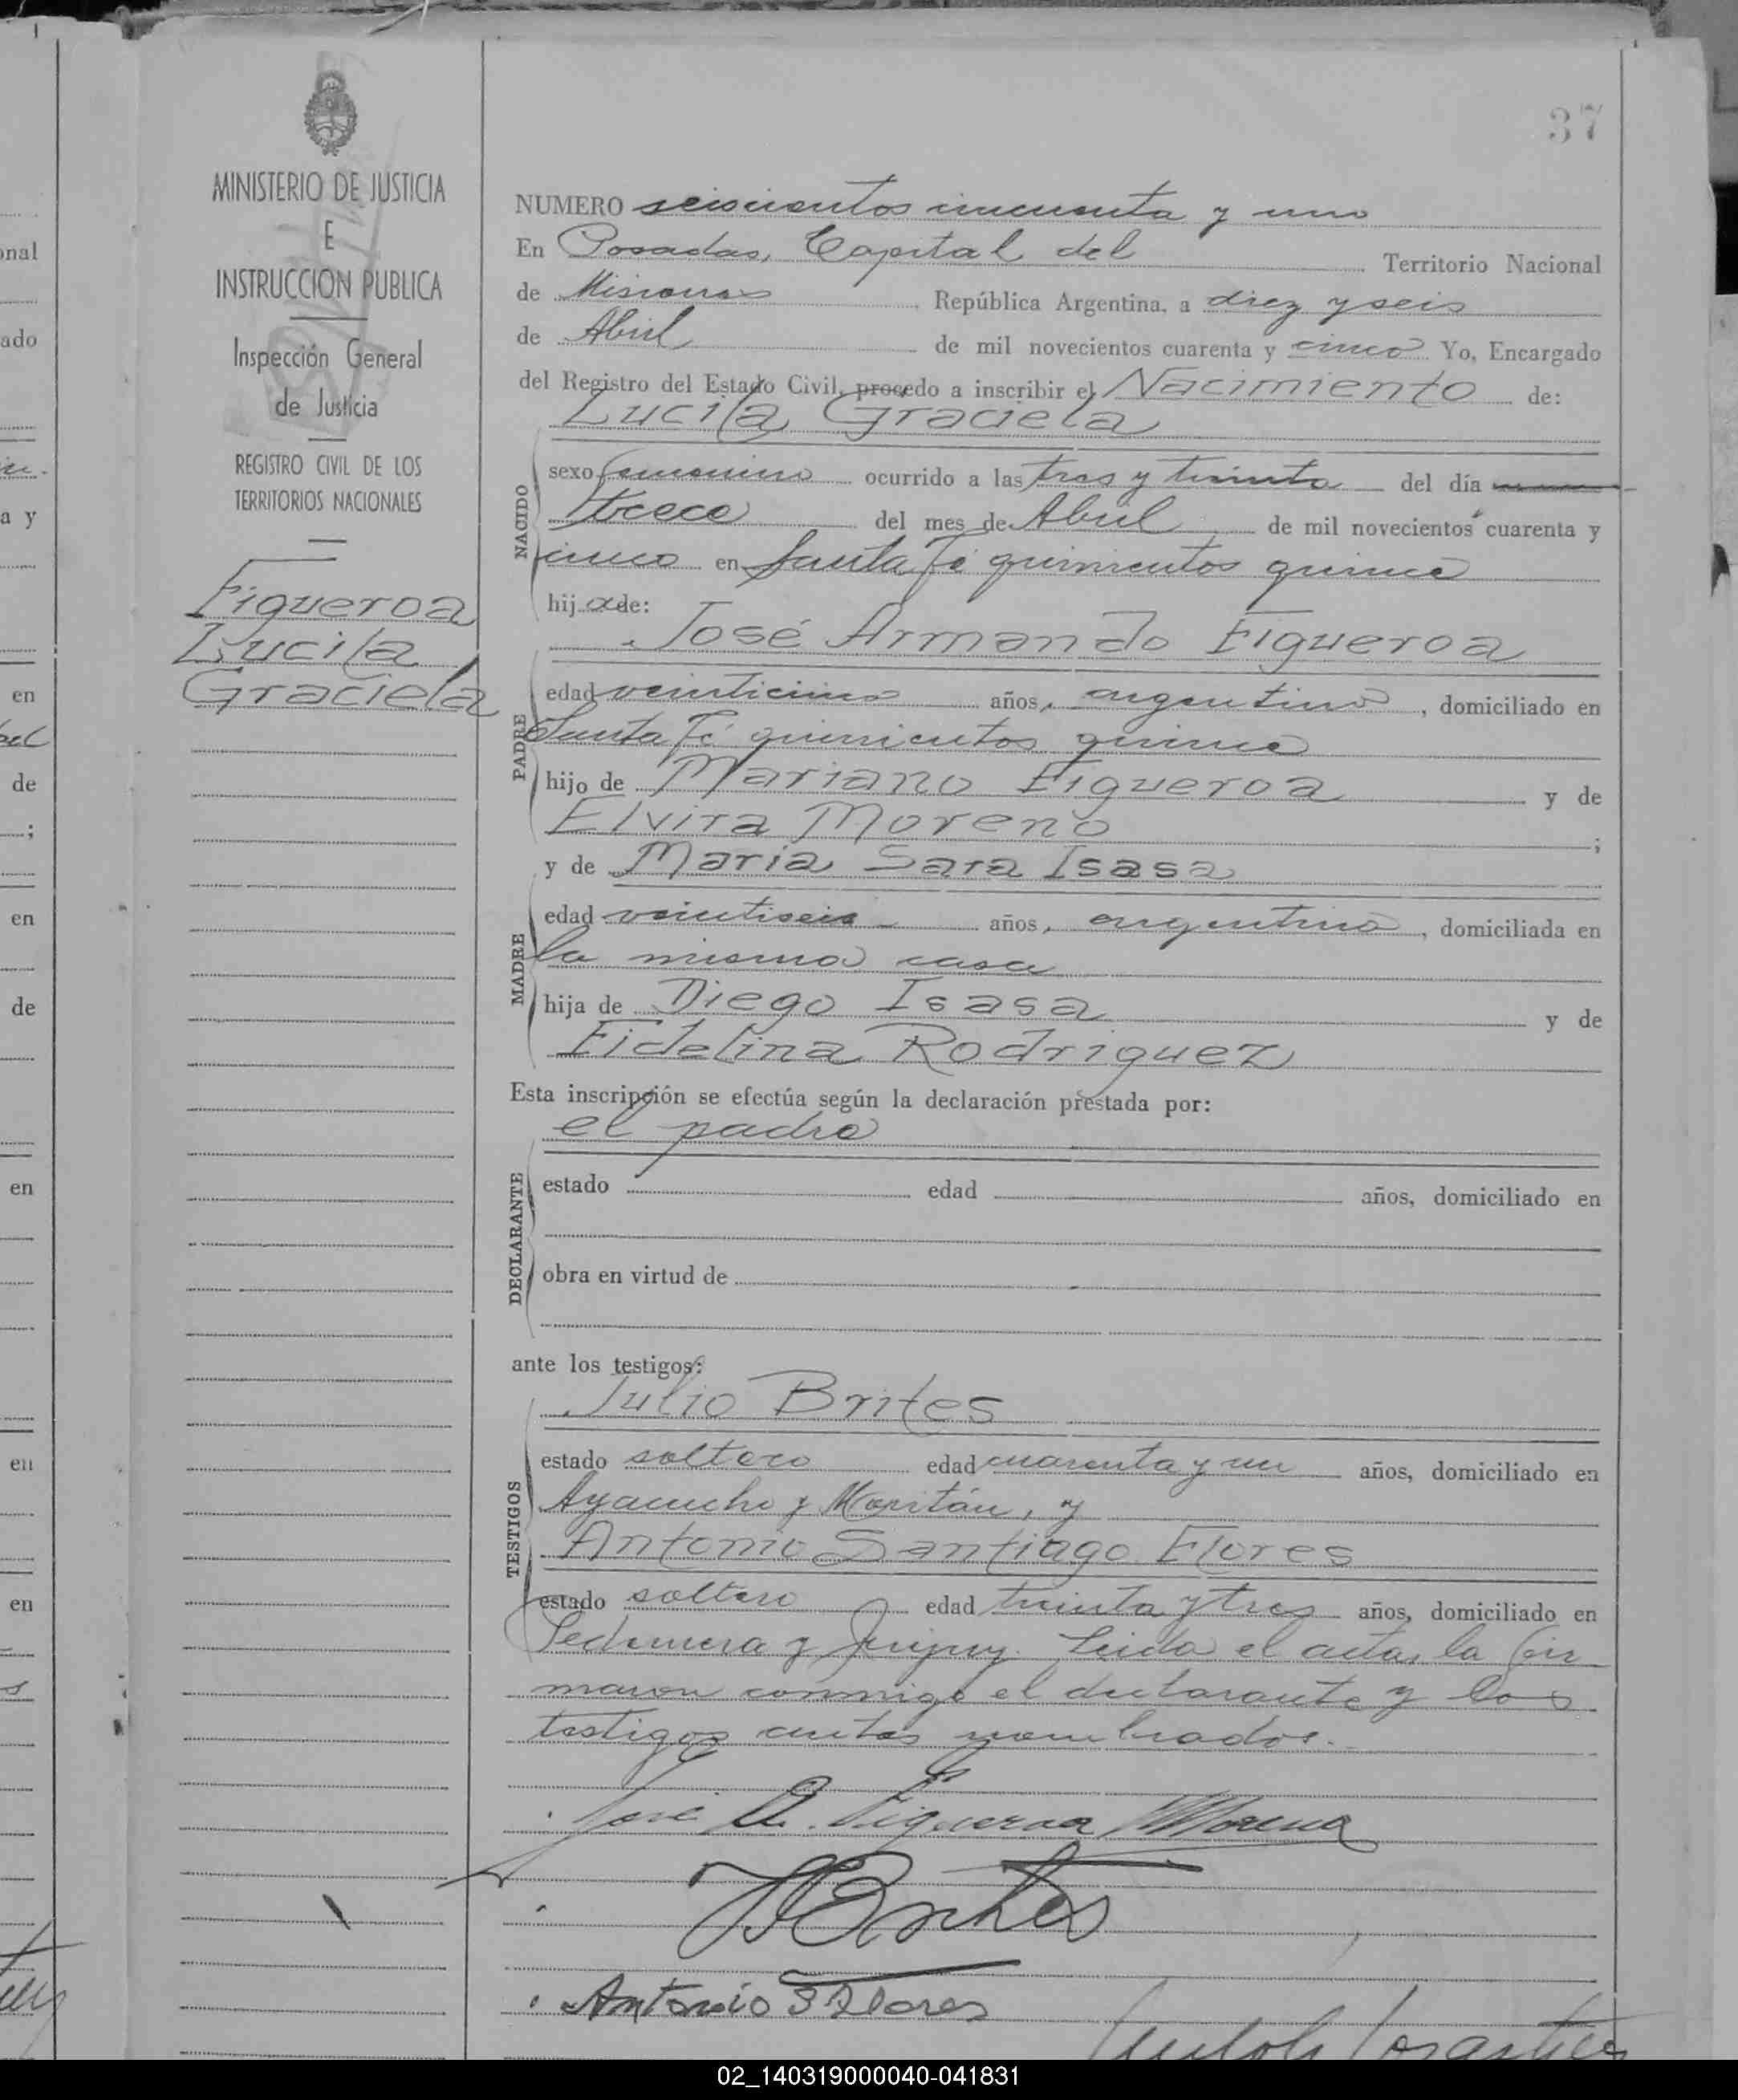 37
MINISTERIO DE JUSTICIA
E
INSTRUCCION PUBLICA
Inspección General
de Justicia
REGISTRO CIVIL DE LOS
TERRITORIOS NACIONALES
Figueroa
Lucila
Graciela
NUMERO seiscientos cincuenta y uno
En Posadas, Capital del Territorio Nacional
de Misiones República Argentina, a diez y seis
de Abril de mil novecientos cuarenta y cinco Yo, Encargado
del Registro del Estado Civil, procedo a inscribir el Nacimiento de:
Lucila Graciela
NACIDO
sexo femenino ocurrido a las tres y treinta del día
trece del mes de Abril de mil novecientos cuarenta y
cinco en Santa Fé quinientos quince
hija de:
José Armando Figueroa
PADRE
edad veinticinco años, argentino, domiciliado en
Santa Fé quinientos quince
hijo de Mariano Figueroa y de
Elvira Moreno ;
y de Maria Sara Isasa
MADRE
edad veintiseis años, argentina, domiciliada en
la misma casa
hija de Diego Isasa y de
Fidelina Rodriguez
Esta inscripción se efectúa según la declaración prestada por:
el padre
DECLARANTE
estado edad años, domiciliado en
obra en virtud de
ante los testigos:
Julio Brites
TESTIGOS
estado soltero edad cuarenta y un años, domiciliado en
Ayacucho y , y
Antonio Santiago Flores
estado soltero edad treinta y tres años, domiciliado en
y Jujuy. Leida el acta, la fir
maron conmigo el declarante y los
testigos antes nombrados.
José A. Figueroa Moreno
Brites
Antonio S Flores
onal
ado
a y
en
de
;
en
de
en
en
en
02_140319000040-041831